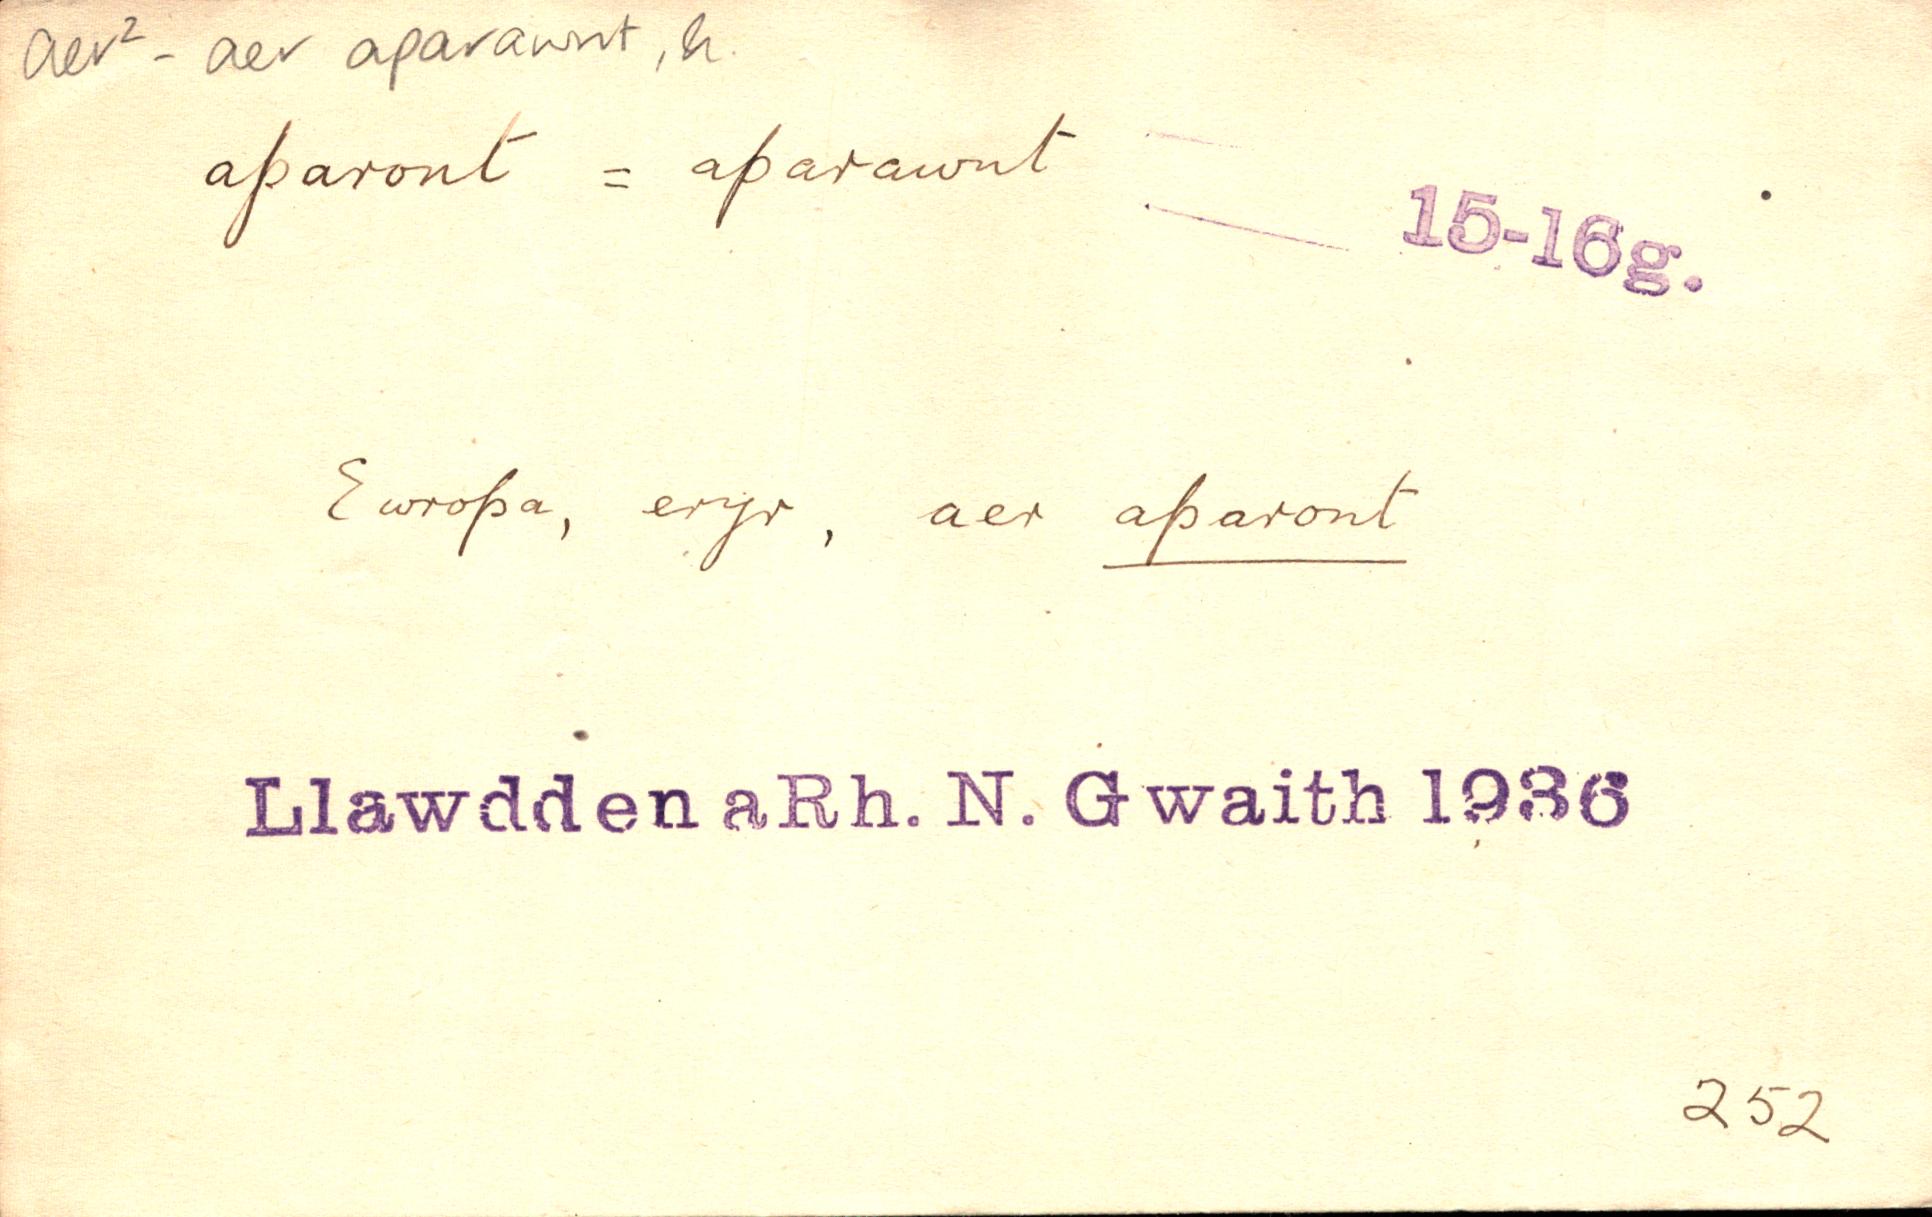 aer² - aer aparawnt, h.
aparont = aparawnt
15-16g.
Ewropa, eryr, aer aparont
Llawdden a Rh. N. Gwaith 1936
252